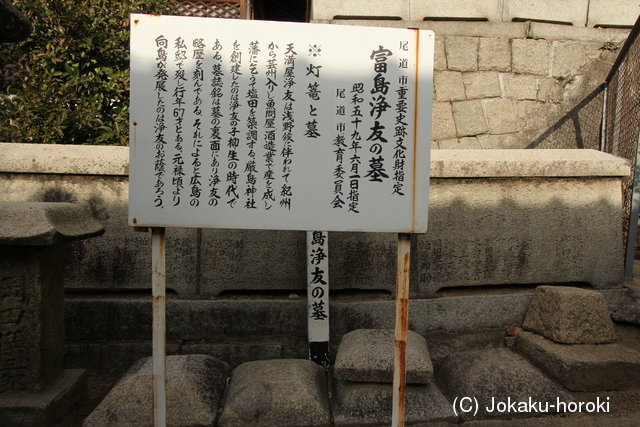 尾道市重要史跡文化財指定
富島浄友の墓
昭和五十九年六月一日指定
尾道市教育委員会
※灯篭と墓
天満屋浄友は浅野侯に伴われて紀州
から芸州入りし魚問屋酒造業で産を成し
藩に乞うて塩田を築調する。厳島神社
を創建したのは浄友の子柳生の時代で
ある。墓誌銘は墓の裏面にあり浄友の
略歴を刻んである。それによると広島の
私邸で歿し行年67才とある。元禄頃より
向島が発展したのは浄友のお蔭であろう。
島浄友の墓
(C) Jokaku-horoki